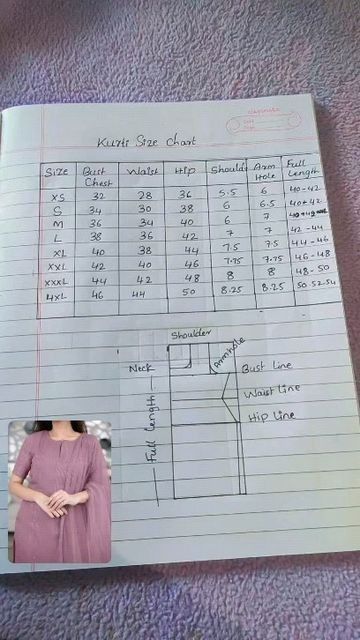 Kurti Size Chart
Size Bust Chest Waist Hip Shoulder Arm Hole Full Length
XS 32 28 36 5.5 6 40-42
S 34 30 38 6 6.5 40+42
M 36 34 40 6 7
L 38 36 42 7 7 42-44
XL 40 38 44 7.5 7.5 44-46
XXL 42 40 46 7.75 7.75 46-48
XXXL 44 42 48 8 8 48-50
4XL 46 44 50 8.25 8.25 50.52-54
Shoulder
Neck
Armhole
Bust line
Waist Line
Hip Line
Full Length